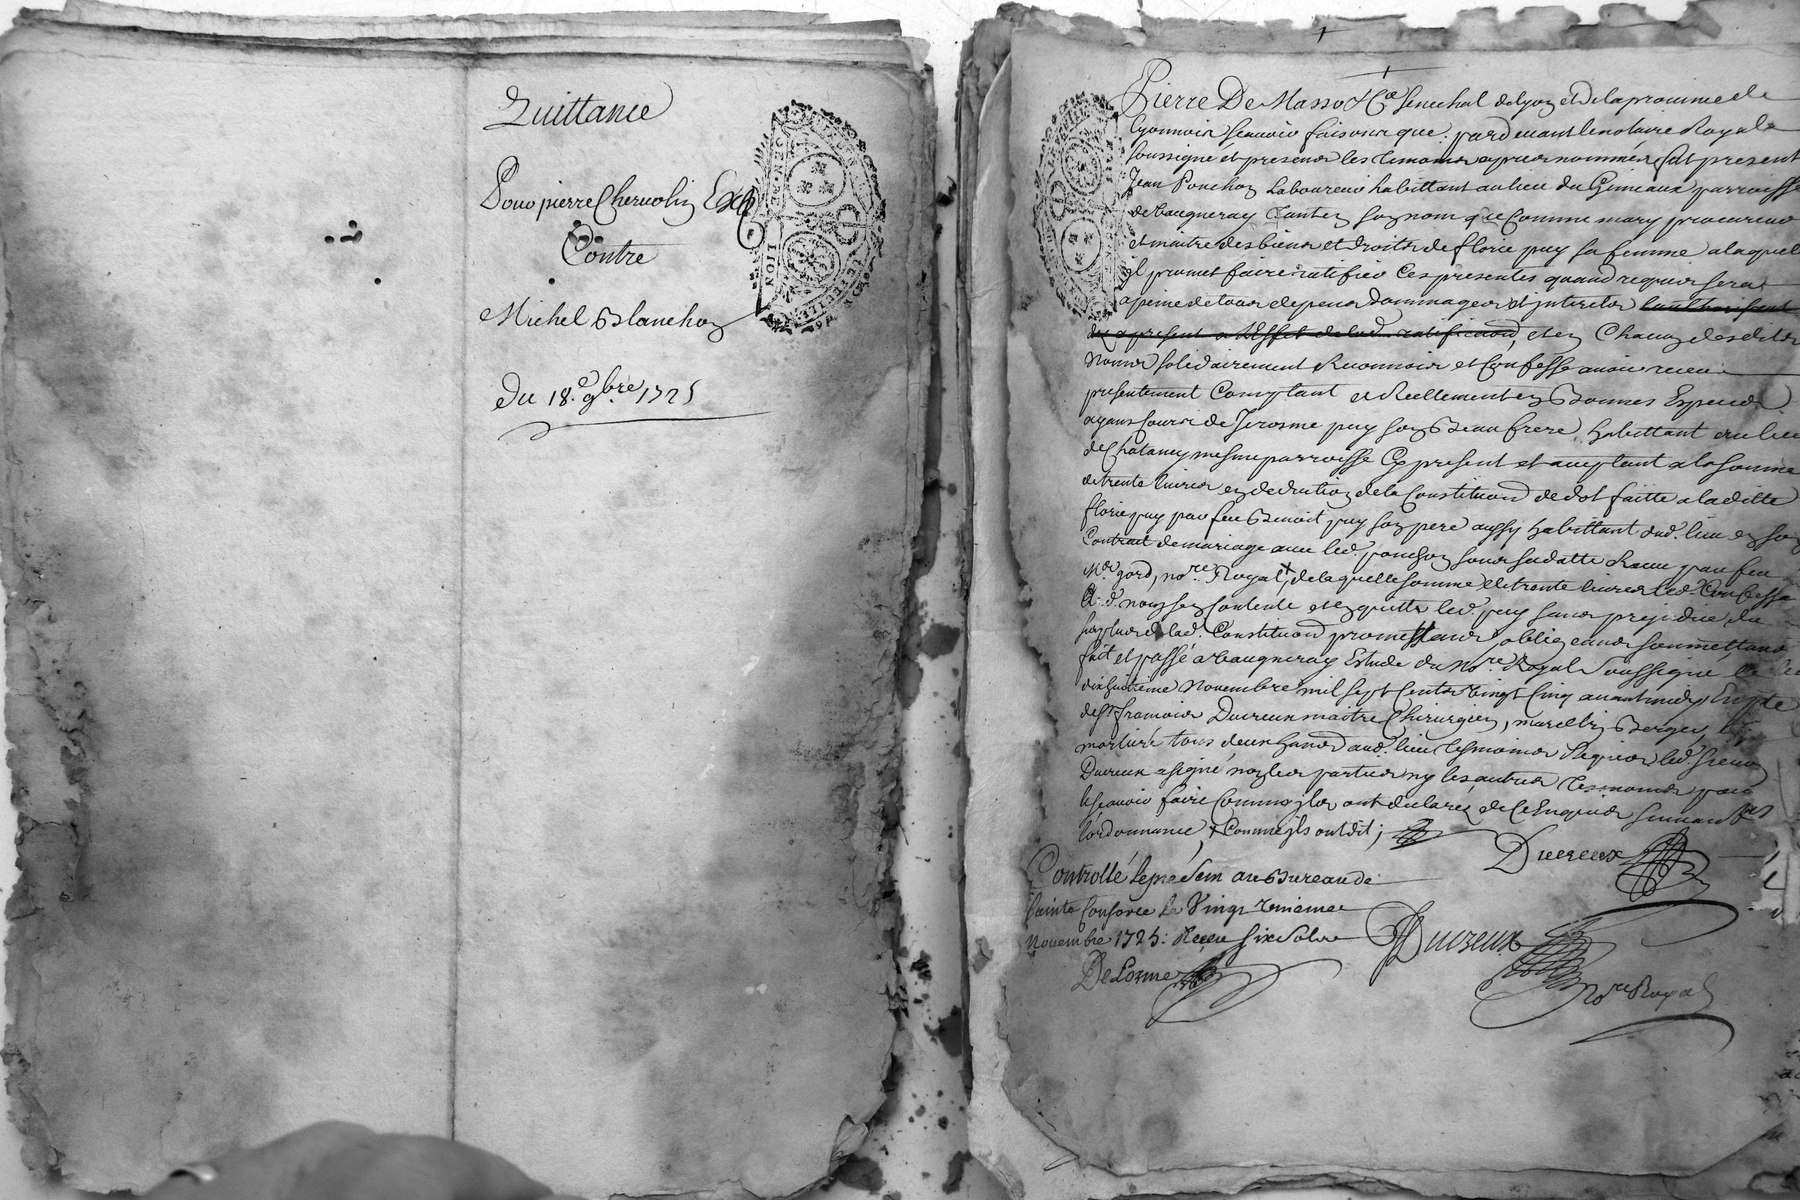 Quittance
Pour pierre Chervolin Exp
Contre
Michel Blanchon
Du 18.e 9bre 1725
Pierre De Masso &ca senechal de lyon et de la province de
lyonnois scavoir faisons que pardevant le notaire Royal
soussigné et presens les temoins apres nommés fut present
Jean Ponchon Laboureur habittant au lieu du Gimeaux parroisse
de vaugneray tant en son nom que Comme mary procureur
et maitre des biens et droits de florie puy sa femme a laquelle
il promet faire ratifier Ces presentes quand requis sera
a peine de tous depens dommages et interets
des a present a l'Effet de lad. ratificaon, et en Chacun desdits
Noms solidairement Reconnois et Confesse avoir receu
presentement Comptant et Reellement en Bonnes Especes
ayans Cours de Jerosme puy son Beau frere habittant au lieu
de Chatanay mesme parroisse Cy present et acceptant la somme
de trente livres en deduction de la Constitution de dot faitte a laditte
florie puy par feu Benoit puy son pere aussy habittant dud. lieu en son
Contrat de mariage avec led. ponchon sous sa datte Receu par feu
Me gord, nore Royal, de laquelle somme de trente livres led. Confessa
aud. nom son Contente et en quitte led. puy sans prejudice du
surplus de lad. Constitution promettans obligeans soumettans
fait et passé a vaugneray Estude du Nore Royal soussigné le
dix huitieme Novembre mil sept Cents vingt Cinq avant midy En pnce
de sr francois Ducreux maitre Chirurgien, marcellin Berger,
tous deux aud. lieu tesmoins Requis led. sieur
Ducreux a signé non les parties ny les autres tesmoins pour
ne scavoir faire Comme ils ont declaré de Ce Enquis suivant
l'ordonnance, Comme ils ont dit;
Ducreux
Controllé le pnt au Bureau de
Sainte Consorce le Vingt
Novembre 1725. Receu six sols
DeLorme
Ducreux
Nore Royal